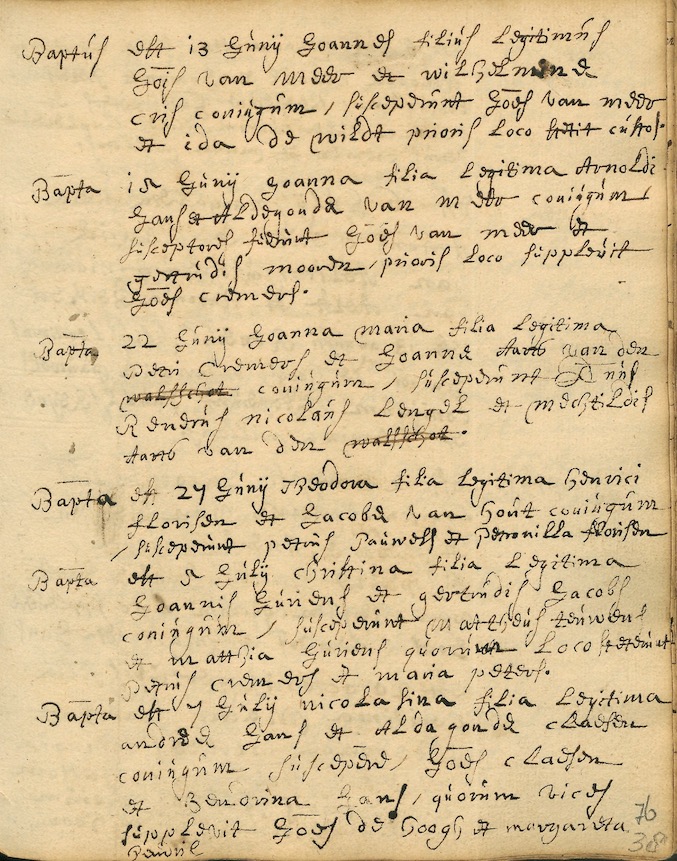 Baptus est 13 Junij Joannes filius Legitimus
Jōis van meer et wilhelmine
Cris coniugum, susceperunt Jōes van meer
et ida de wildt prioris loco stetit custos.
Bapta 18 Junij Joanna filia Legitima Arnoldi
Jans et Aldegonde van meer coniugum
susceptores fuerunt Jōes van meer et
gertrudis mooren, prioris loco supplevit
Jōes cremers.
Bapta 22 Junij Joanna maria filia Legitima
Petri Cremers et Joanne Aarts van den
walsschot coniugum, susceperunt Dnus
Rendus nicolaus Lengel et mechtildis
Aarts van den walsschot.
Bapta est 27 Junij Theodora filia Legitima Henrici
florisen et Jacobe van hout coniugum
, susceperunt petrus Pauwels et Petronilla florisen
Bapta est 5 Julij Christina filia Legitima
Joannis Juriens et gertrudis Jacobs
coniugum, susceperunt mattheus teuwens
et matthia Juriens quorum Loco steterunt
Petrus cremers et maria peters.
Bapta est 7 Julij nicolasina filia Legitima
andree Jans et Aldagonde claesen
coniugum suscepere, Jōes claesen
et Jans, quorum vices
supplevit Jōes de hoogh et margareta
76
38